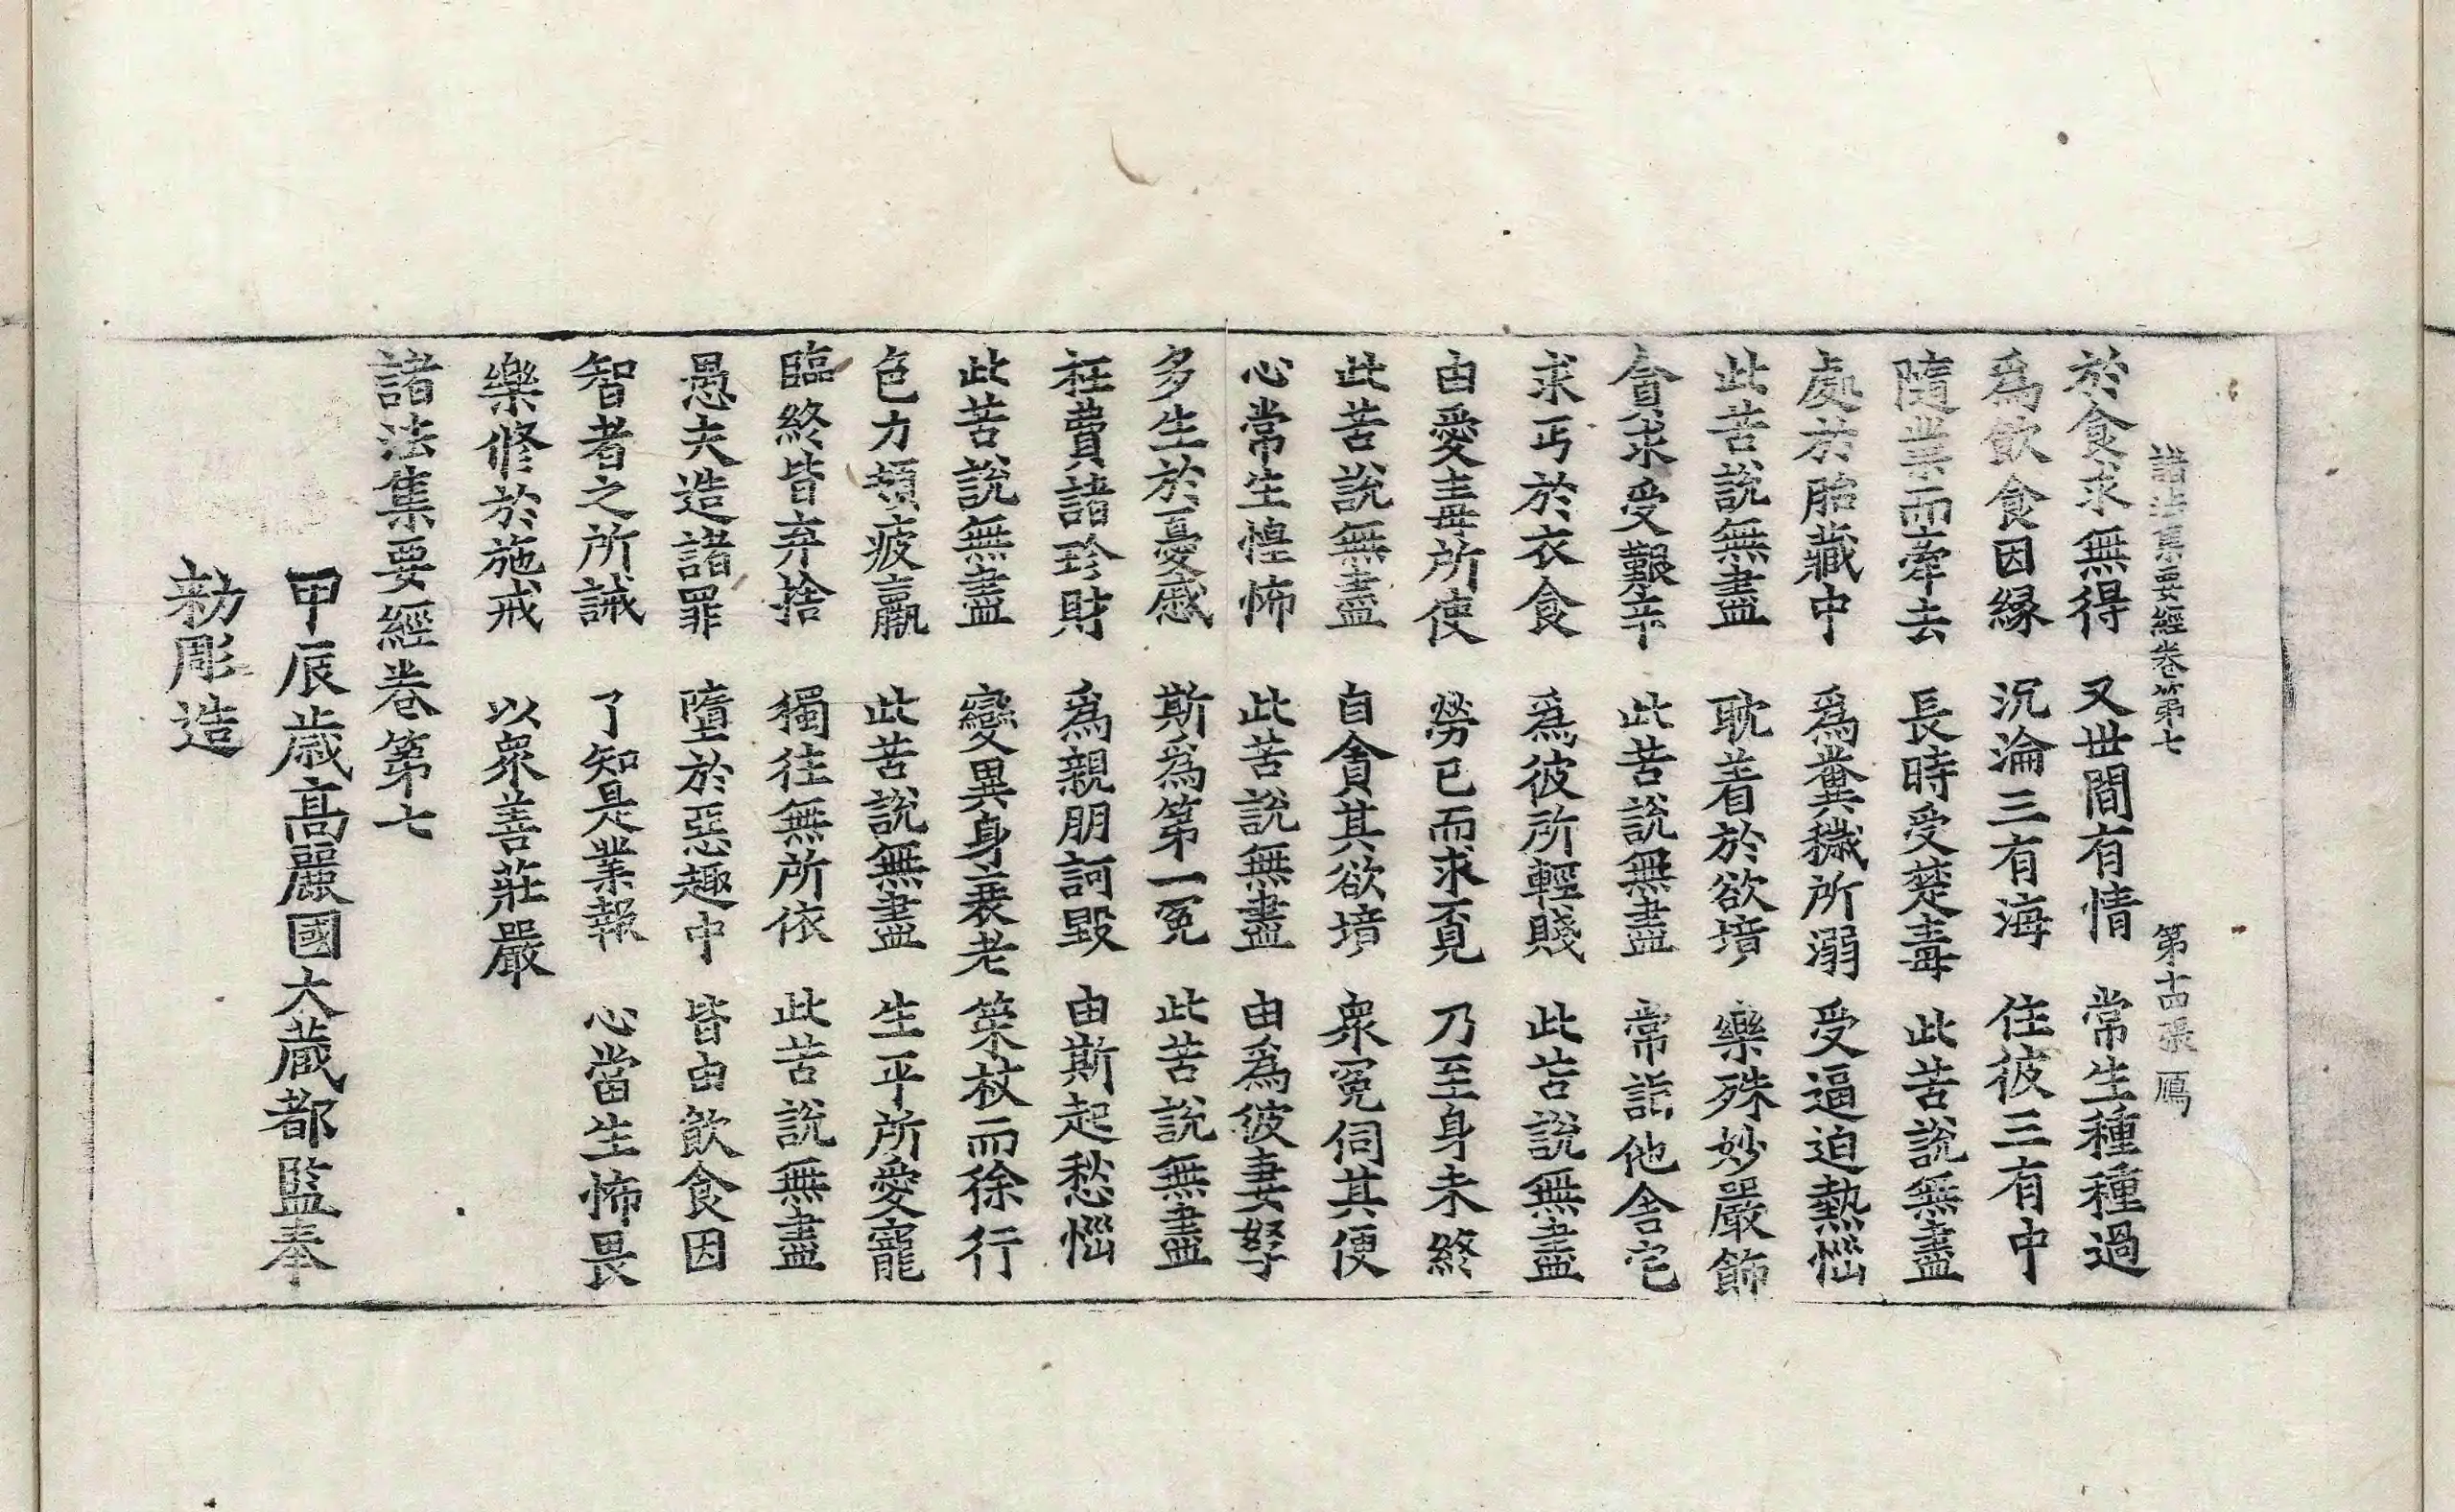 諸法集要經卷第七　第十四張　鴈
於食求無得　又世間有情　常生種種過
爲飲食因緣　沉淪三有海　住彼三有中
隨業而牽去　長時受楚毒　此苦說無盡
處於胎藏中　爲糞穢所溺　受逼迫熱惱
此苦說無盡　耽着於欲境　樂殊妙嚴飾
貪求受艱辛　此苦說無盡　常詣他舍宅
求丐於衣食　爲彼所輕賤　此苦說無盡
由愛毒所使　勞己而求覓　乃至身未終
此苦說無盡　自貪其欲境　衆冤伺其便
心常生惶怖　此苦說無盡　由爲彼妻孥
多生於憂慼　斯爲第一冤　此苦說無盡
枉費諸珍財　爲親朋訶毀　由斯起愁惱
此苦說無盡　變異身衰老　策杖而徐行
色力頓疲羸　此苦說無盡　生平所愛寵
臨終皆弃捨　獨往無所依　此苦說無盡
愚夫造諸罪　墮於惡趣中　皆由飲食因
智者之所誡　了知是業報　心當生怖畏
樂修於施戒　以衆善莊嚴
諸法集要經卷第七
甲辰歳高麗國大藏都監奉
勑彫造